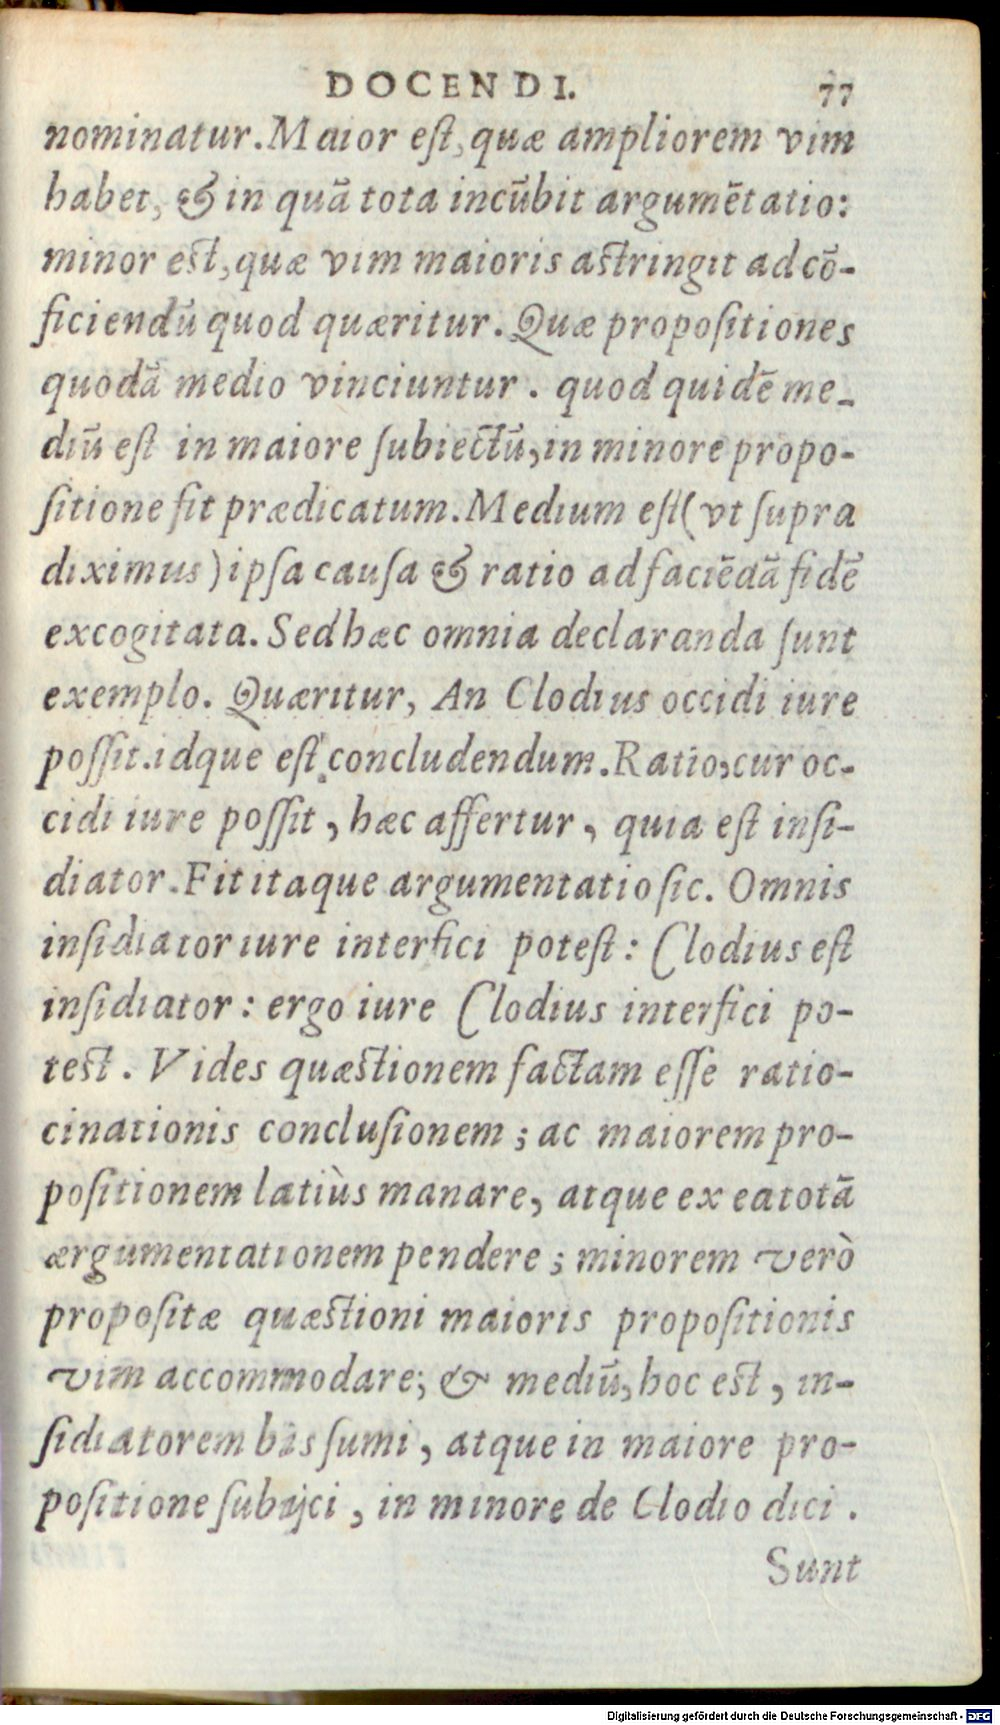 DOCENDI. 77
nominatur. Maior est, quæ ampliorem vim
habet, & in quā tota incūbit argumētatio:
minor est, quæ vim maioris astringit ad cō-
ficiendū quod quæritur. Quæ propositiones
quodā medio vinciuntur. quod quidē me-
diū est in maiore subiectū, in minore propo-
sitione sit prædicatum. Medium est (vt supra
diximus) ipsa causa & ratio ad faciēdā fidē
excogitata. Sed hæc omnia declaranda sunt
exemplo. Quæritur, An Clodius occidi iure
possit. idque est concludendum. Ratio, cur oc-
cidi iure possit, hæc affertur, quia est insi-
diator. Fit itaque argumentatio sic. Omnis
insidiator iure interfici potest: Clodius est
insidiator: ergo iure Clodius interfici po-
test. Vides quæstionem factam esse ratio-
cinationis conclusionem; ac maiorem pro-
positionem latiùs manare, atque ex ea totā
ærgumentationem pendere; minorem verò
propositæ quæstioni maioris propositionis
vim accommodare; & mediū, hoc est, in-
sidiatorem bis sumi, atque in maiore pro-
positione subijci, in minore de Clodio dici.
Sunt
Digitalisierung gefördert durch die Deutsche Forschungsgemeinschaft - DFG